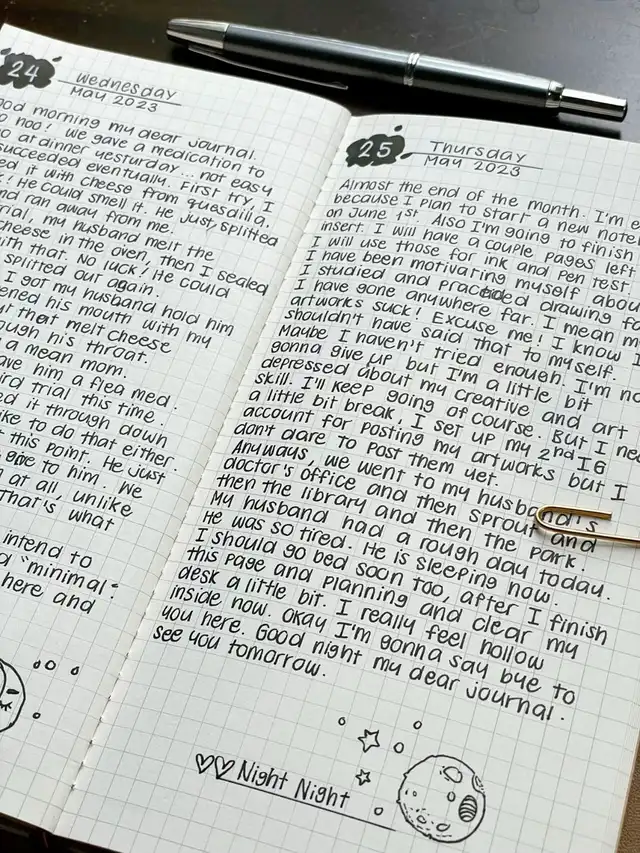 24
Wednesday
May 2023
od morning my dear Journal.
noo! We gave a medication to
at dinner yesturday... not easy
succeeded eventually. First try, I
ed it with cheese from quesadilla.
! He could smell it. He just splitted
nd ran away from me.
rial, my husband melt the
heese in the oven, then I sealed
ith that. No luck! He could
splitted out again.
I got my husband hold him
ened his mouth with my
ut that melt cheese
ough his throat.
a mean mom.
ave him a flea med.
ird trial this time.
ed it through down
ike to do that either.
t this point. He just
give to him. We
n at all, unlike
That's what
intend to
d "minimal"
here and
25
Thursday
May 2023
Almost the end of the month. I'm e
because I plan to start a new note
on June 1st. Also I'm going to finish
insert. I will have a couple pages left
I will use those for ink and pen test.
I have been motivating myself abou
I studied and practiced drawing fo
I have gone anywhere far. I mean m
artworks suck! Excuse me! I know I
shouldn't have said that to myself.
Maybe I haven't tried enough. I'm no
gonna give up but I'm a little bit
depressed about my creative and art
skill. I'll keep going of course. But I nee
a little bit break. I set up my 2nd IG
account for posting my artworks but I
don't dare to post them yet.
Anyways, we went to my husband's
doctor's office and then sprout and
then the library and then the park.
My husband had a rough day today.
He was so tired. He is sleeping now.
I should go bed soon too, after I finish
this page and planning and clear my
desk a little bit. I really feel hollow
inside now. Okay I'm gonna say bye to
you here. Good night my dear journal.
see you tomorrow.
Night Night